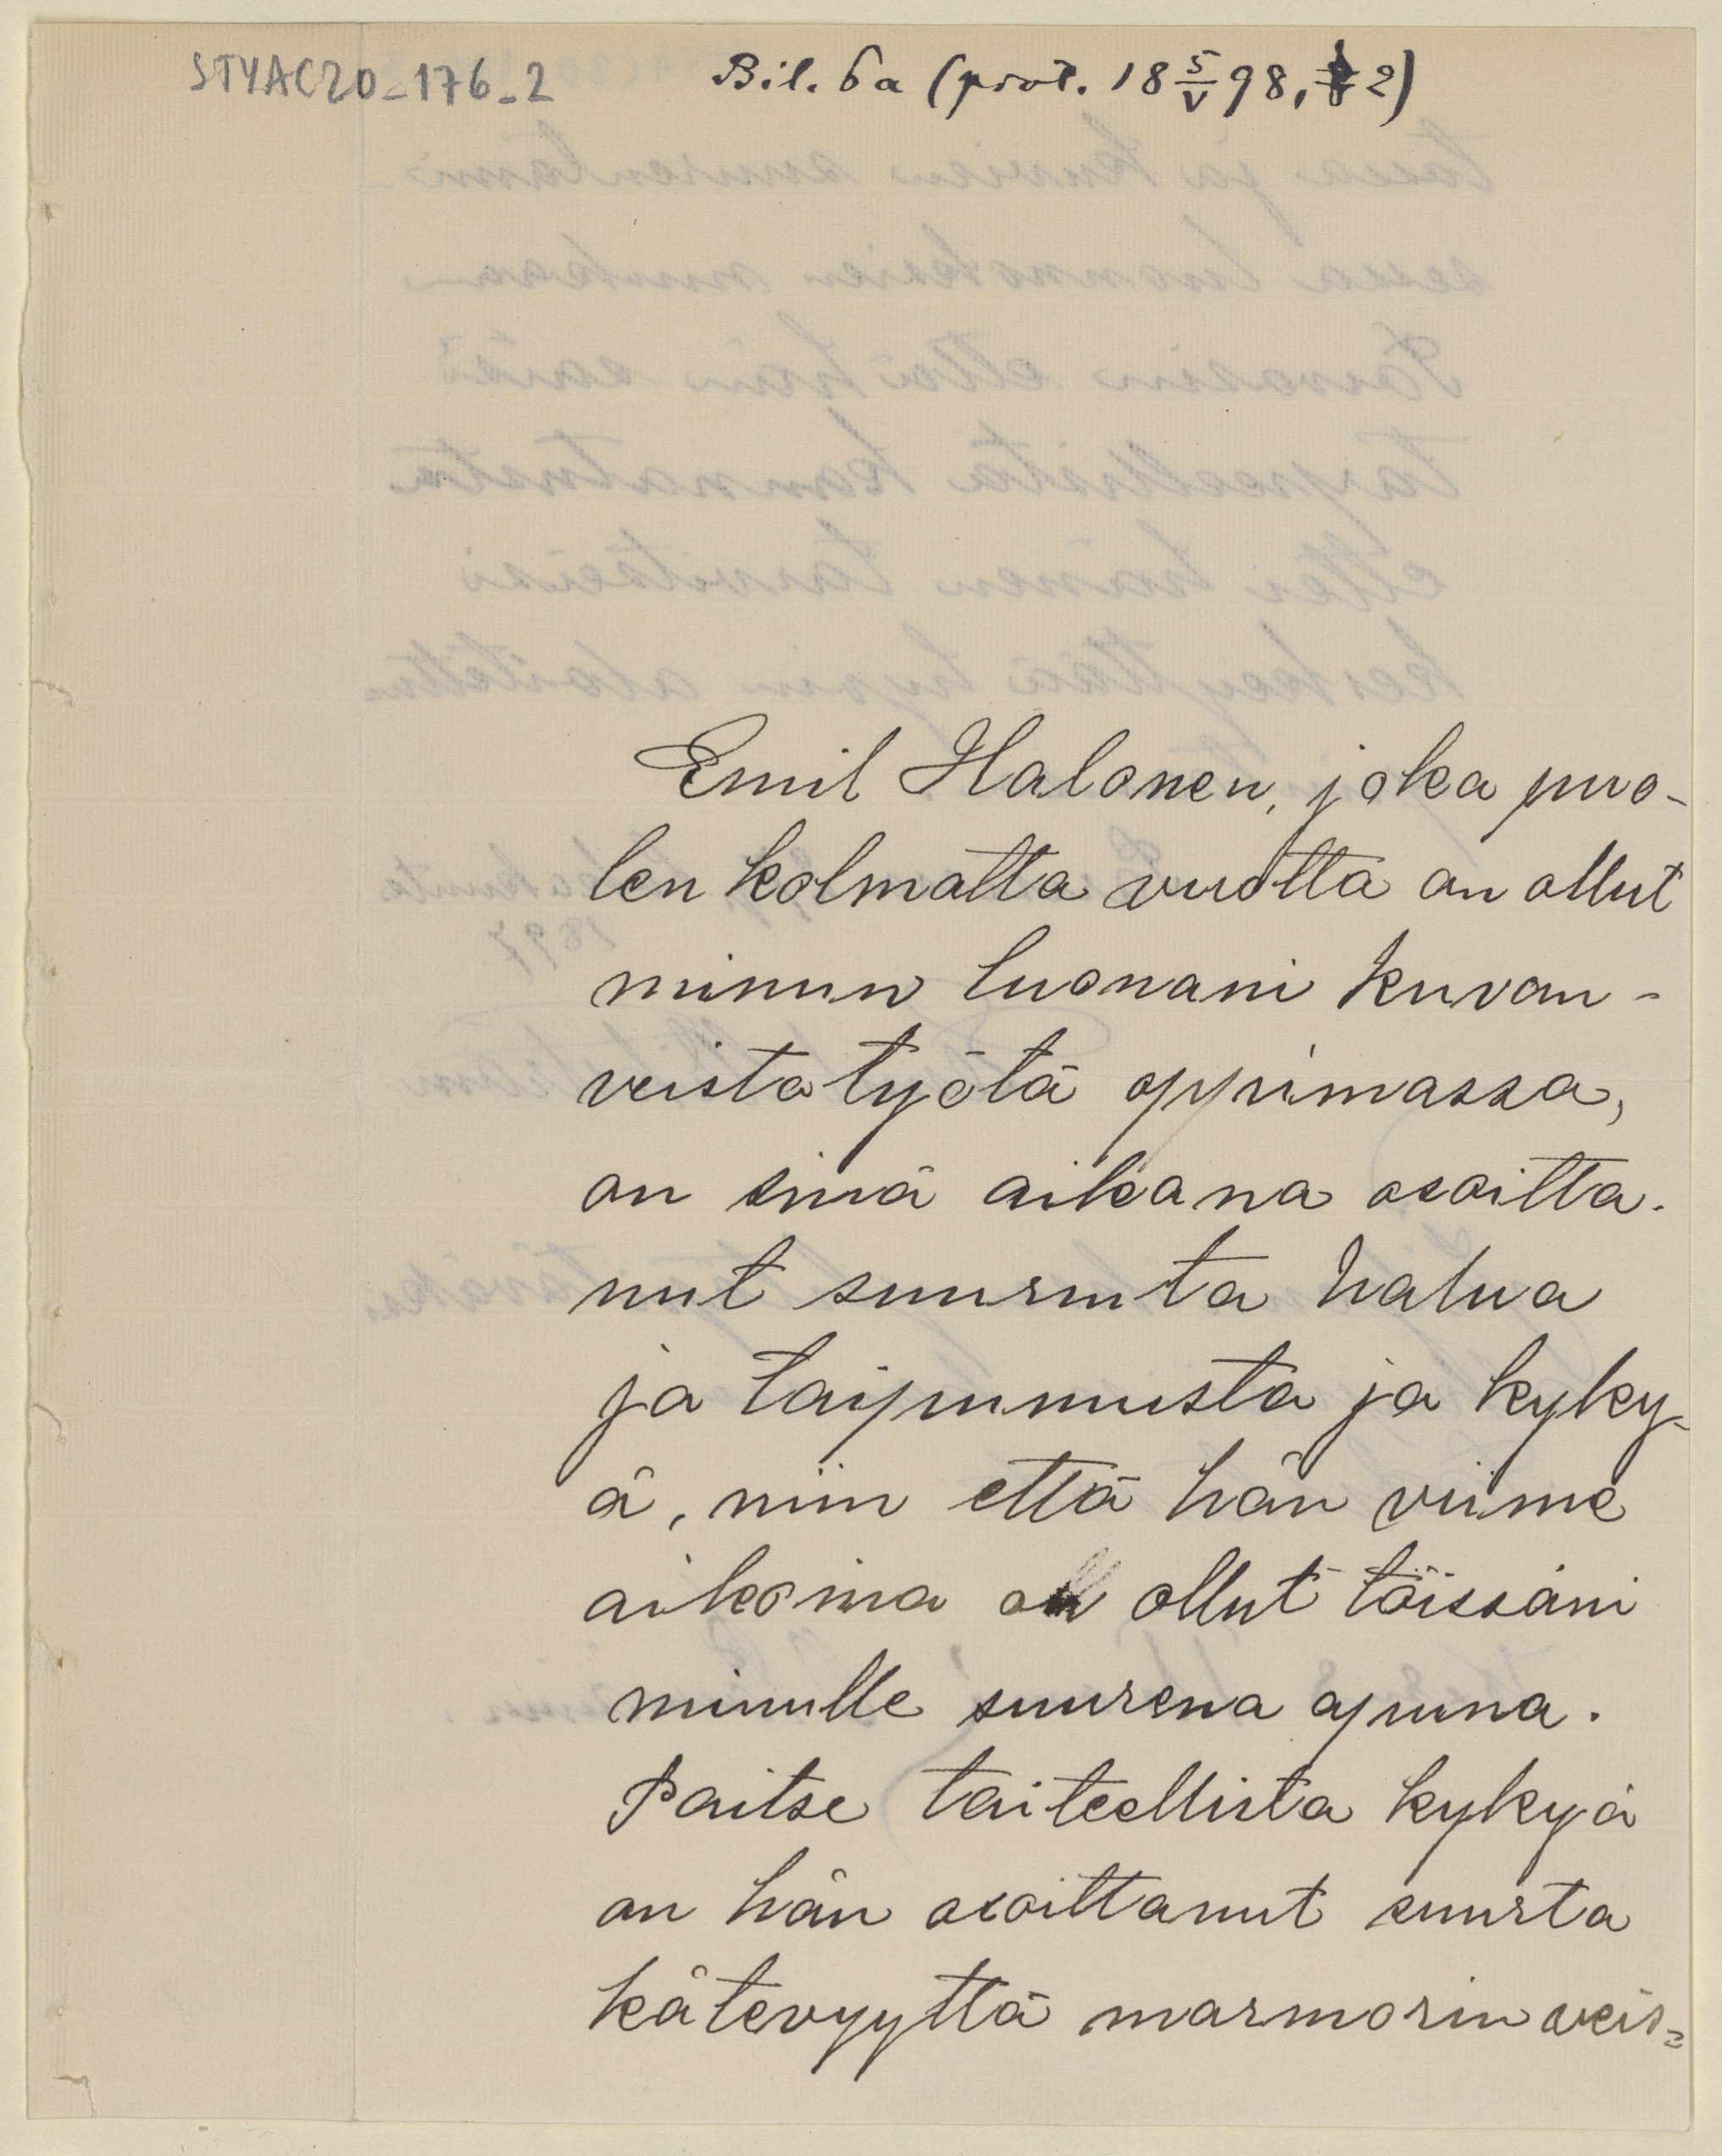 STYAC20_176_2 Bil. 6a (prot. 18 5/V 98, § 2)
Emil Halonen, joka puo-
len kolmatta vuotta on ollut
minun luonani kuvan-
veistotyötä oppimassa,
on sinä aikana osoitta-
nut suurinta halua
ja taipumusta ja kyky-
ä, niin että hän viime
aikoina on ollut töissäni
minulle suurena apuna.
Paitse taiteellista kykyä
on hän osoittanut suurta
kätevyyttä marmorin veis-